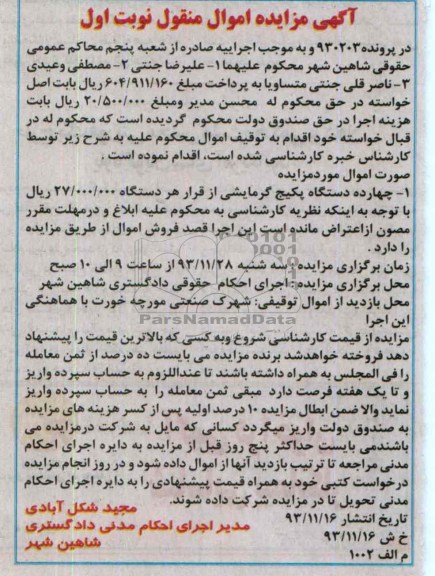 آگهی مزایده اموال منقول نوبت اول
در پرونده ۹۳۰۲۰۳ و به موجب اجراییه صادره از شعبه پنجم محاکم عمومی
حقوقی شاهین شهر محکوم علیهما ۱- علیرضا جنتی ۲- مصطفی وعیدی
۳- ناصر قلی جنتی متساویا به پرداخت مبلغ ۶۰۴/۹۱۱/۱۶۰ ریال بابت اصل
خواسته در حق محکوم له محسن مدیر ومبلغ ۲۰/۵۰۰/۰۰۰ ریال بابت
هزینه اجرا در حق صندوق دولت محکوم گردیده است که محکوم له در
قبال خواسته خود اقدام به توقیف اموال محکوم علیه به شرح زیر توسط
کارشناس خبره کارشناسی شده است، اقدام نموده است .
صورت اموال موردمزایده
۱- چهارده دستگاه پکیج گرمایشی از قرار هر دستگاه ۲۷/۰۰۰/۰۰۰ ریال
با توجه به اینکه نظریه کارشناسی به محکوم علیه ابلاغ و درمهلت مقرر
مصون ازاعتراض مانده است این اجرا قصد فروش اموال از طریق مزایده
را دارد .
زمان برگزاری مزایده : سه شنبه ۹۳/۱۱/۲۸ از ساعت ۹ الی ۱۰ صبح
محل برگزاری مزایده : اجرای احکام حقوقی دادگستری شاهین شهر
محل بازدید از اموال توقیفی: شهرک صنعتی مورچه خورت با هماهنگی
این اجرا
ParsNamadData
مزایده از قیمت کارشناسی شروع وبه کسی که بالاترین قیمت را پیشنهاد
دهد فروخته خواهدشد برنده مزایده می بایست ده درصد از ثمن معامله
را فی المجلس به همراه داشته باشند تا عنداللزوم به حساب سپرده واریز
و تا یک هفته فرصت دارد مبقی ثمن معامله را به حساب سپرده واریز
نماید والا ضمن ابطال مزایده ۱۰ درصد اولیه پس از کسر هزینه های مزایده
به صندوق دولت واریز میگردد کسانی که مایل به شرکت درمزایده می
باشندمی بایست حداکثر پنج روز قبل از مزایده به دایره اجرای احکام
مدنی مراجعه تا ترتیب بازدید آنها از اموال داده شود و در روز انجام مزایده
درخواست کتبی خود به همراه قیمت پیشنهادی را به دایره اجرای احکام
مدنی تحویل تا در مزایده شرکت داده شوند.
تاریخ انتشار ۹۳/۱۱/۱۶
خ ش ۹۳/۱۱/۱۶
م الف ۱۰۰۲
مجید شکل آبادی
مدیر اجرای احکام مدنی دادگستری
شاهین شهر